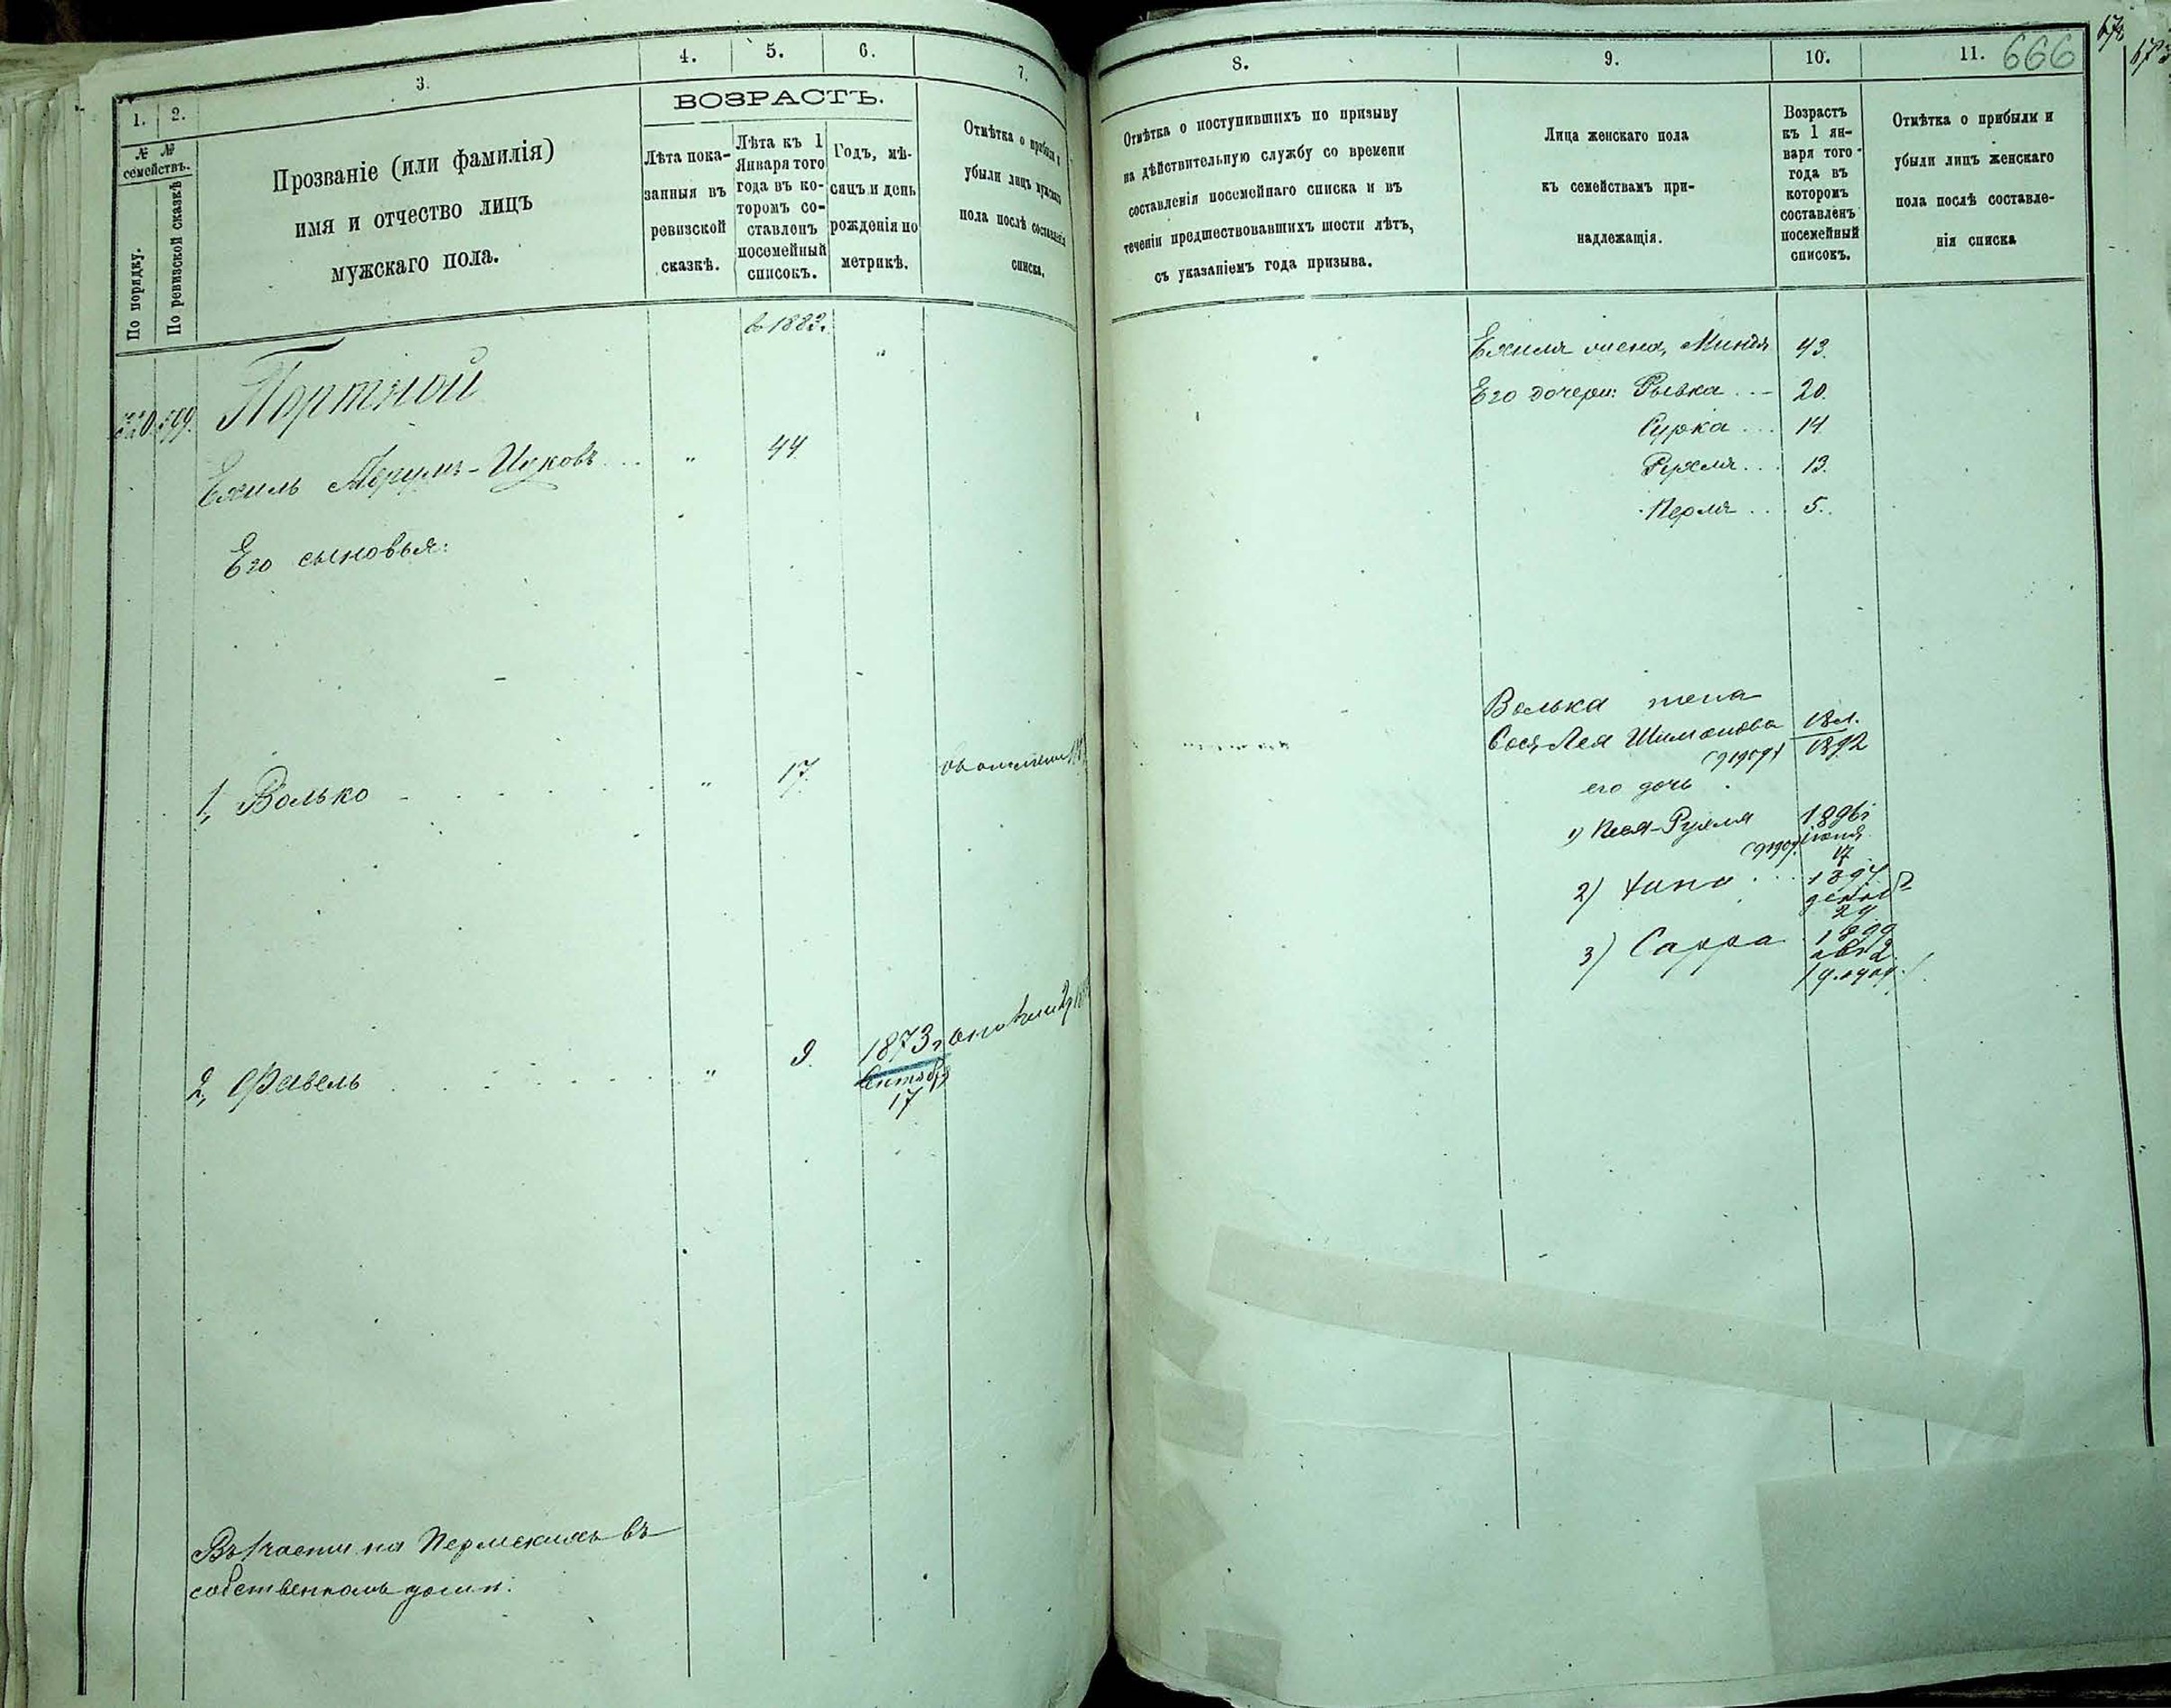 1.
2.
3.
4.
5.
6.
7.
№ №
семействъ.
По порядку.
По ревизской сказкѣ
Прозваніе (или фамилія)
имя и отчество лицъ
мужскаго пола.
ВОЗРАСТЪ.
Лѣта пока-
занныя въ
ревизской
сказкѣ.
Лѣта къ 1
Января того
года въ ко-
торомъ со-
ставленъ
посемейный
списокъ.
Годъ, мѣ-
сяцъ и день
рожденія по
метрикѣ.
Отмѣтка о прибыли и
убыли лицъ мужскаго
пола послѣ составленія
списка.
в 1882.
Портной
599.
Ехиль 44
Его сыновья:
1, Волько 17.
2, Файвель 9. 1873 г.
Сентября
17
Въ 1 части на Пермскихъ въ
собственномъ домѣ.
8.
9.
10.
11.
666
Отмѣтка о поступившихъ по призыву
на дѣйствительную службу со времени
составленія посемейнаго списка и въ
теченіи предшествовавшихъ шести лѣтъ,
съ указаніемъ года призыва.
Лица женскаго пола
къ семействамъ при-
надлежащія.
Возрастъ
къ 1 ян-
варя того
года въ
которомъ
составленъ
посемейный
списокъ.
Отмѣтка о прибыли и
убыли лицъ женскаго
пола послѣ составле-
нія списка
Ехиля жена, Миндя 43.
Его дочери: Рывка 20.
Сурка 14.
Рухля 13.
Перля 5.
Волька жена
Сося-Лея Шимонова 18 л.
1892
его дочь
1) Песя-Рухля 1896 г.
іюня
17
2) 1897
декаб
29
3) Сарра 1899
авг 2